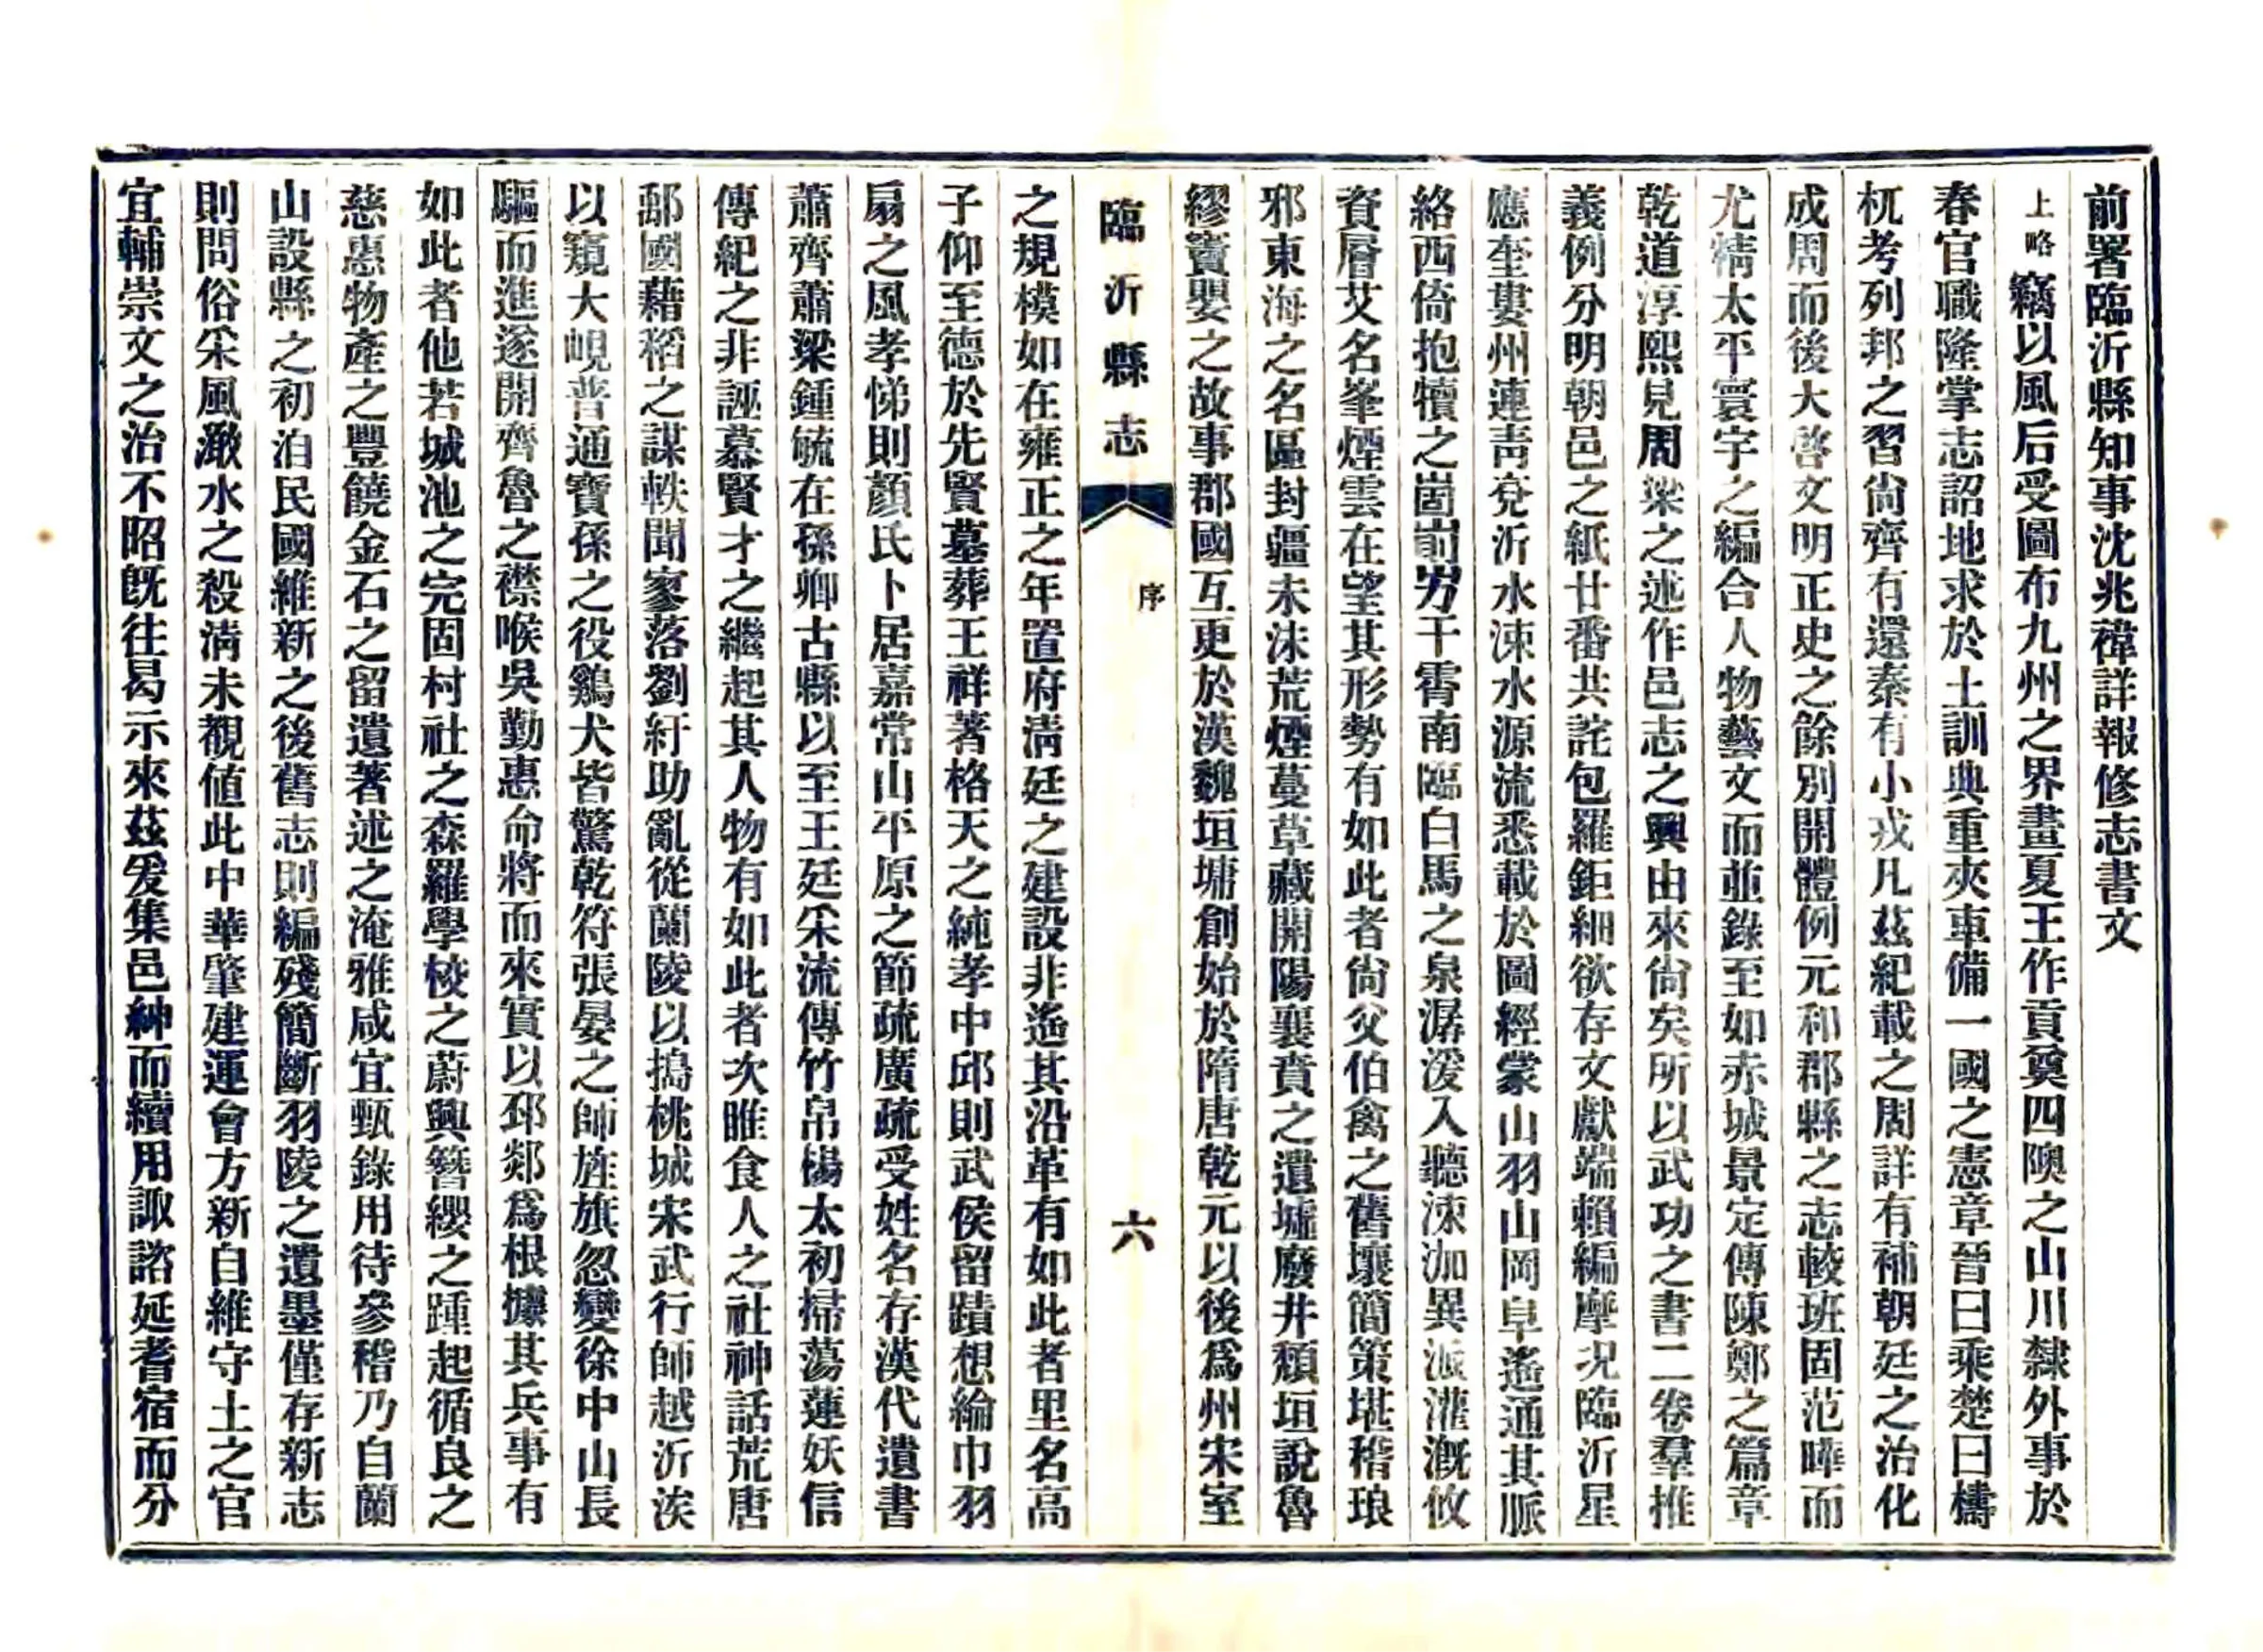 前署臨沂縣知事沈兆禕詳報修志書文
上略竊以風后受圖布九州之界畫夏王作貢奠四隩之山川隸外事於
春官職隆掌志詔地求於土訓典重夾車備一國之憲章晉曰乘楚曰檮
杌考列邦之習尙齊有還秦有小戎凡茲紀載之周詳有補朝廷之治化
成周而後大啓文明正史之餘別開體例元和郡縣之志較班固范曄而
尤精太平寰宇之編合人物藝文而並錄至如赤城景定傳陳鄭之篇章
乾道淳熙見周梁之述作邑志之興由來尙矣所以武功之書二卷羣推
義例分明朝邑之紙廿番共詫包羅鉅細欲存文獻端賴編摩況臨沂星
應奎婁州連靑兗沂水涑水源流悉載於圖經蒙山羽山岡阜遙通其脈
絡西倚抱犢之崮崱屴干霄南臨白馬之泉潺湲入聽涑泇異派灌漑攸
資層艾名峯煙雲在望其形勢有如此者尙父伯禽之舊壤簡策堪稽琅
邪東海之名區封疆未沬荒煙蔓草藏開陽襄賁之遺墟廢井頹垣說魯
繆竇嬰之故事郡國互更於漢魏垣墉創始於隋唐乾元以後爲州宋室
臨沂縣志 序 六
之規模如在雍正之年置府淸廷之建設非遙其沿革有如此者里名高
子仰至德於先賢墓葬王祥著格天之純孝中邱則武侯留蹟想綸巾羽
扇之風孝悌則顏氏卜居嘉常山平原之節疏廣疏受姓名存漢代遺書
蕭齊蕭梁鍾毓在孫卿古縣以至王廷采流傳竹帛楊太初掃蕩蓮妖信
傳紀之非誣慕賢才之繼起其人物有如此者次睢食人之社神話荒唐
鄅國藉稻之謀軼聞寥落劉紆助亂從蘭陵以搗桃城宋武行師越沂涘
以窺大峴普通寶孫之役鷄犬皆驚乾符張晏之師旌旗忽變徐中山長
驅而進遂開齊魯之襟喉吳勤惠命將而來實以邳郯爲根據其兵事有
如此者他若城池之完固村社之森羅學校之蔚興簪纓之踵起循良之
慈惠物產之豐饒金石之留遺著述之淹雅咸宜甄錄用待參稽乃自蘭
山設縣之初洎民國維新之後舊志則編殘簡斷羽陵之遺墨僅存新志
則問俗采風澉水之殺淸未覩値此中華肇建運會方新自維守土之官
宜輔崇文之治不昭旣往曷示來茲爰集邑紳而續用諏諮延耆宿而分